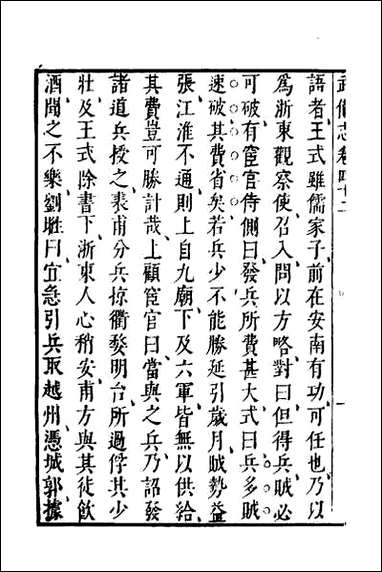 武備志卷四十二
語者王式雖儒家子前在安南有功可任也乃以
爲浙東觀察使召入問以方略對曰但得兵賊必
可破有宦官侍側曰發兵所費甚大式曰兵多賊
速破其費省矣若兵少不能勝延引歲月賊勢益
張江淮不通則上自九廟下及六軍皆無以供給
其費豈可勝計哉上顧宦官曰當與之兵乃詔發
諸道兵授之裘甫分兵掠衢婺明台所過俘其少
壯及王式除書下浙東人心稍安甫方與其徒飲
酒聞之不樂劉暀曰宜急引兵取越州憑城郭據